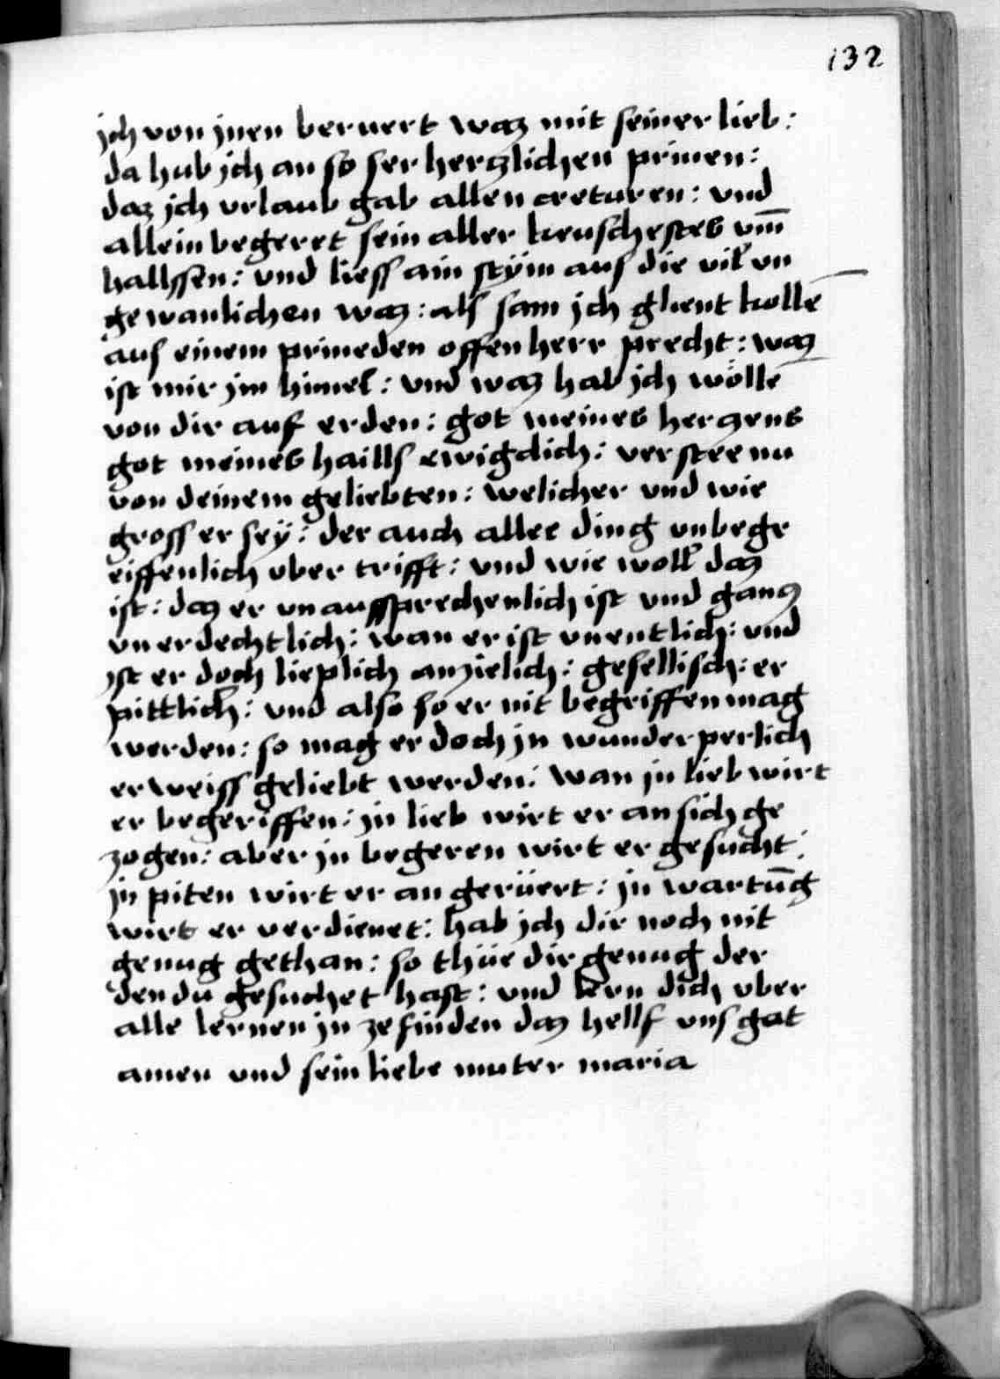 132
jch von jnen beruert waz mit seiner lieb:
da hub jch an so ser herczlichen prinen:
daz jch vrlaub gab allen creturen: vnd
allein begeret sein aller keuschestes vm̄
hallssen: vnd liess ain stÿm aus die vil vn
gewanlichen waz: als sam jch glient kolle
aus einem prineden offen herr precht: waz
ist mir jm himel: vnd waz hab jch wölle
von dir auf erden: got meines herczens
got meines haills ewigclich: verstee nu
von deinem geliebten: welicher vnd wie
gross er sey: der auch aller ding vnbegr
eiffenlich vber trifft: vnd wie woll daz
ist: daz er vnaussprechenlich ist vnd gancz
vnerdechtlich: wan er ist vnentlich: vnd
yst er doch lieplich anzielich: gesellisch: er
pittlich: vnd also so er nit begriffen mag
werden: so mag er doch jn wunderperlich
er weiss geliebt werden: wan jn lieb wirt
er begeriffen: jn lieb wirt er an sich ge
zogen: aber jn begeren wirt er gesucht:
jn piten wirt er an gerüert: jn wartūg
wirt er verdienet: hab jch dir noch nit
genug gethan: so thüe dir genug der
den du gesuchet hast: vnd lern dich vber
alle lernen jn ze finden daz hellf vns got
amen vnd sein liebe muter maria